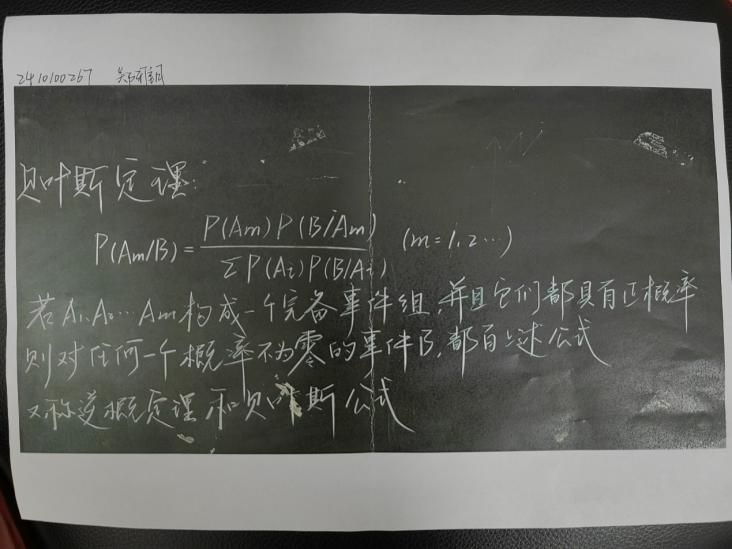 2410100267
贝叶斯定理:
P(Am/B) = P(Am)P(B/Am) / ΣP(Ai)P(B/Ai) (m=1,2…)
若A₁,A₂…Am构成一个完备事件组,并且它们都具有正概率
则对任何一个概率不为零的事件B,都有上述公式
又称逆概定理和贝叶斯公式